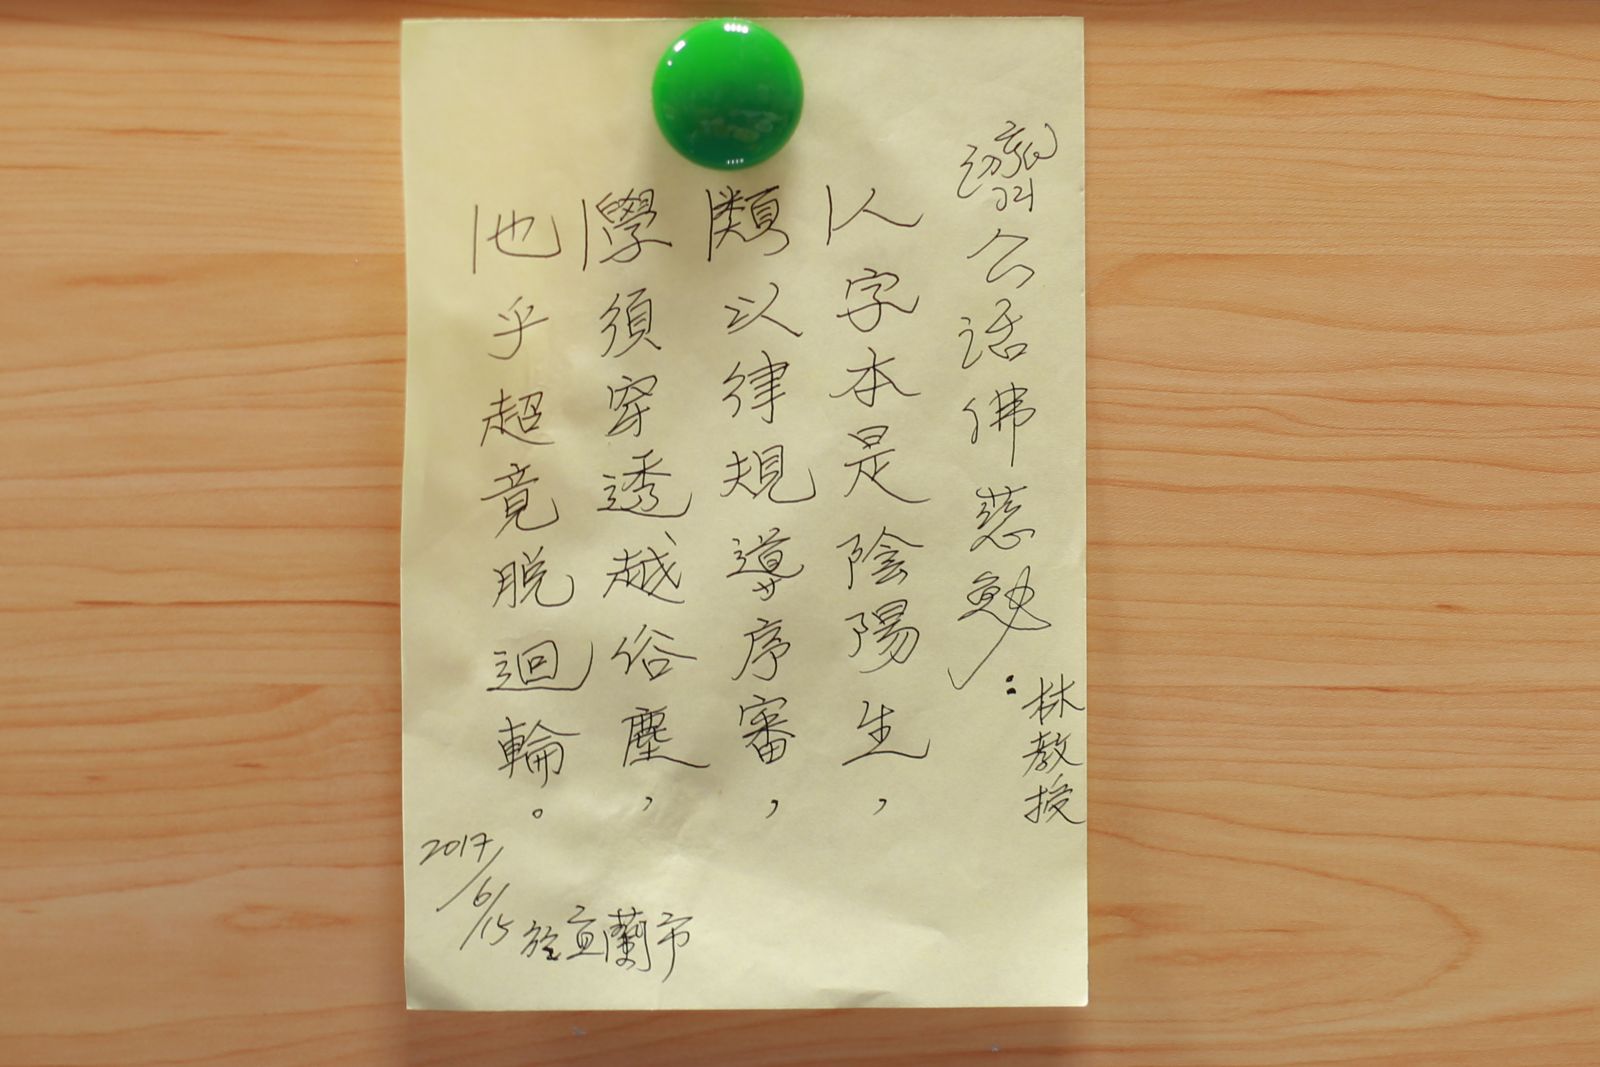 濟公活佛慈勉：林教授
人字本是陰陽生，
類以律規導序審，
學須穿透越俗塵，
也乎超竟脫迴輪。
2017/6/15於宜蘭市